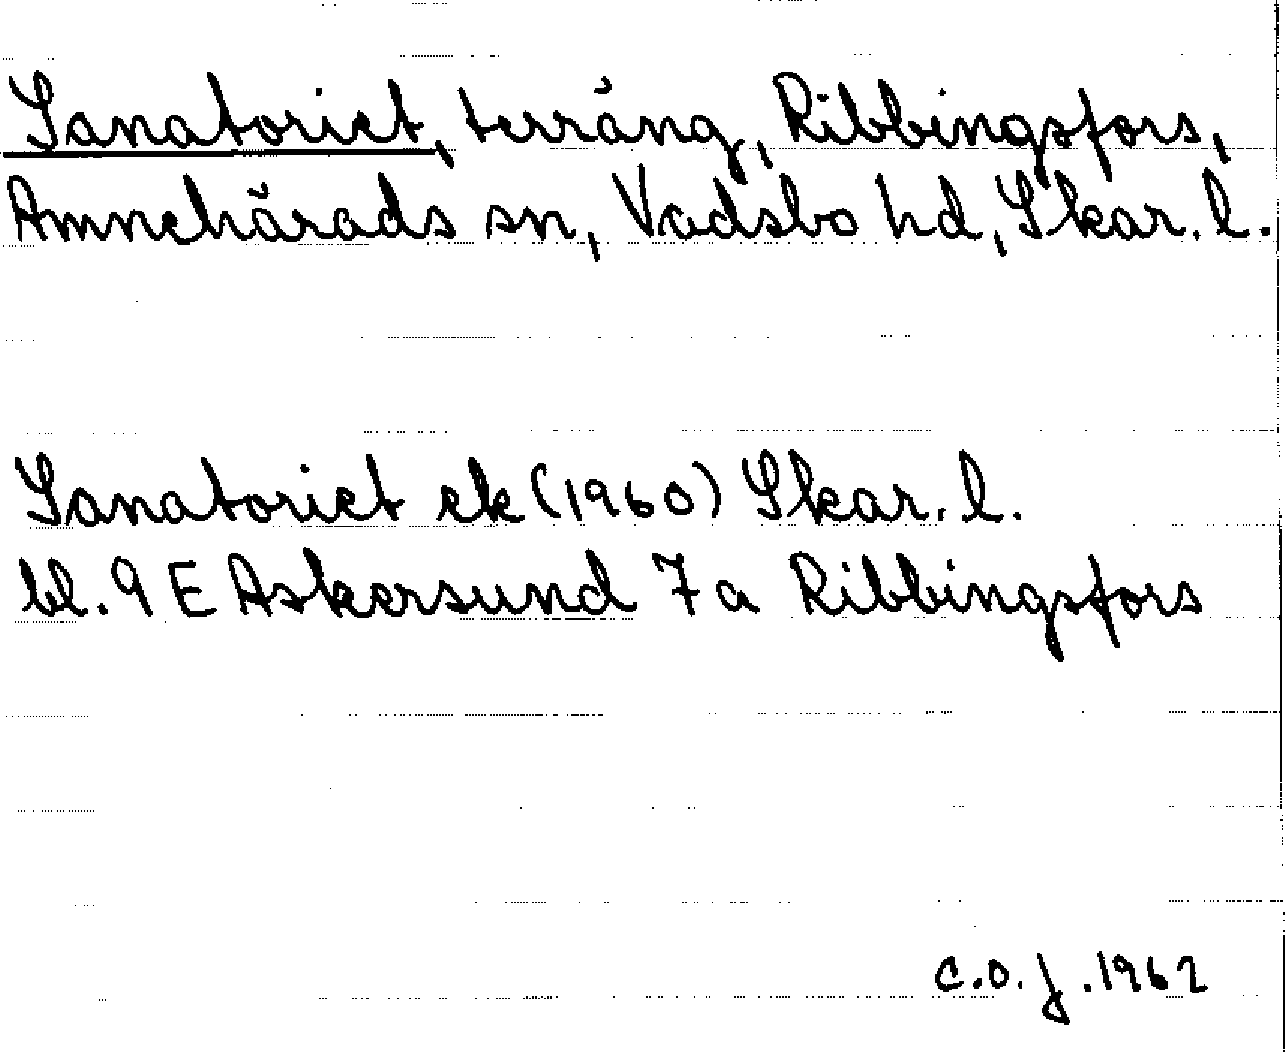 Sanatoriet, terräng, Ribbingsfors,
Amnehärads sn, Vadsbo hd, Skar. l.
Sanatoriet ek (1960) Skar. l.
bl. 9 E Askersund 7 a Ribbingsfors
C.O.J. 1962